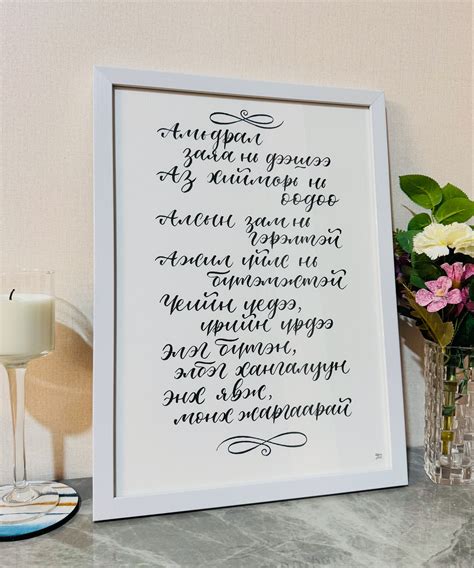 Амьдрал
заяа нь дээшээ
Аз хийморь нь
өөдөө
Алсын зам нь
гэрэлтэй
Ажил үйлс нь
бүтэмжтэй
Үеийн үедээ,
үрийн үрдээ
Элэг бүтэн,
элбэг хангалуун
Энх явж,
мөнх жаргаарай